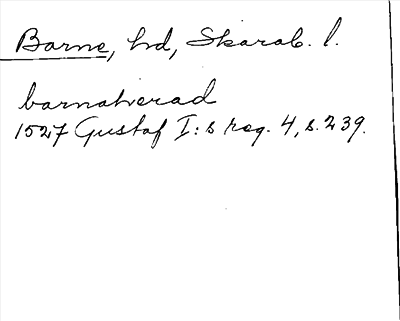 Barne, hd, Skarab. l.
barnahærad
1527 Gustaf I:s reg. 4, s. 239.